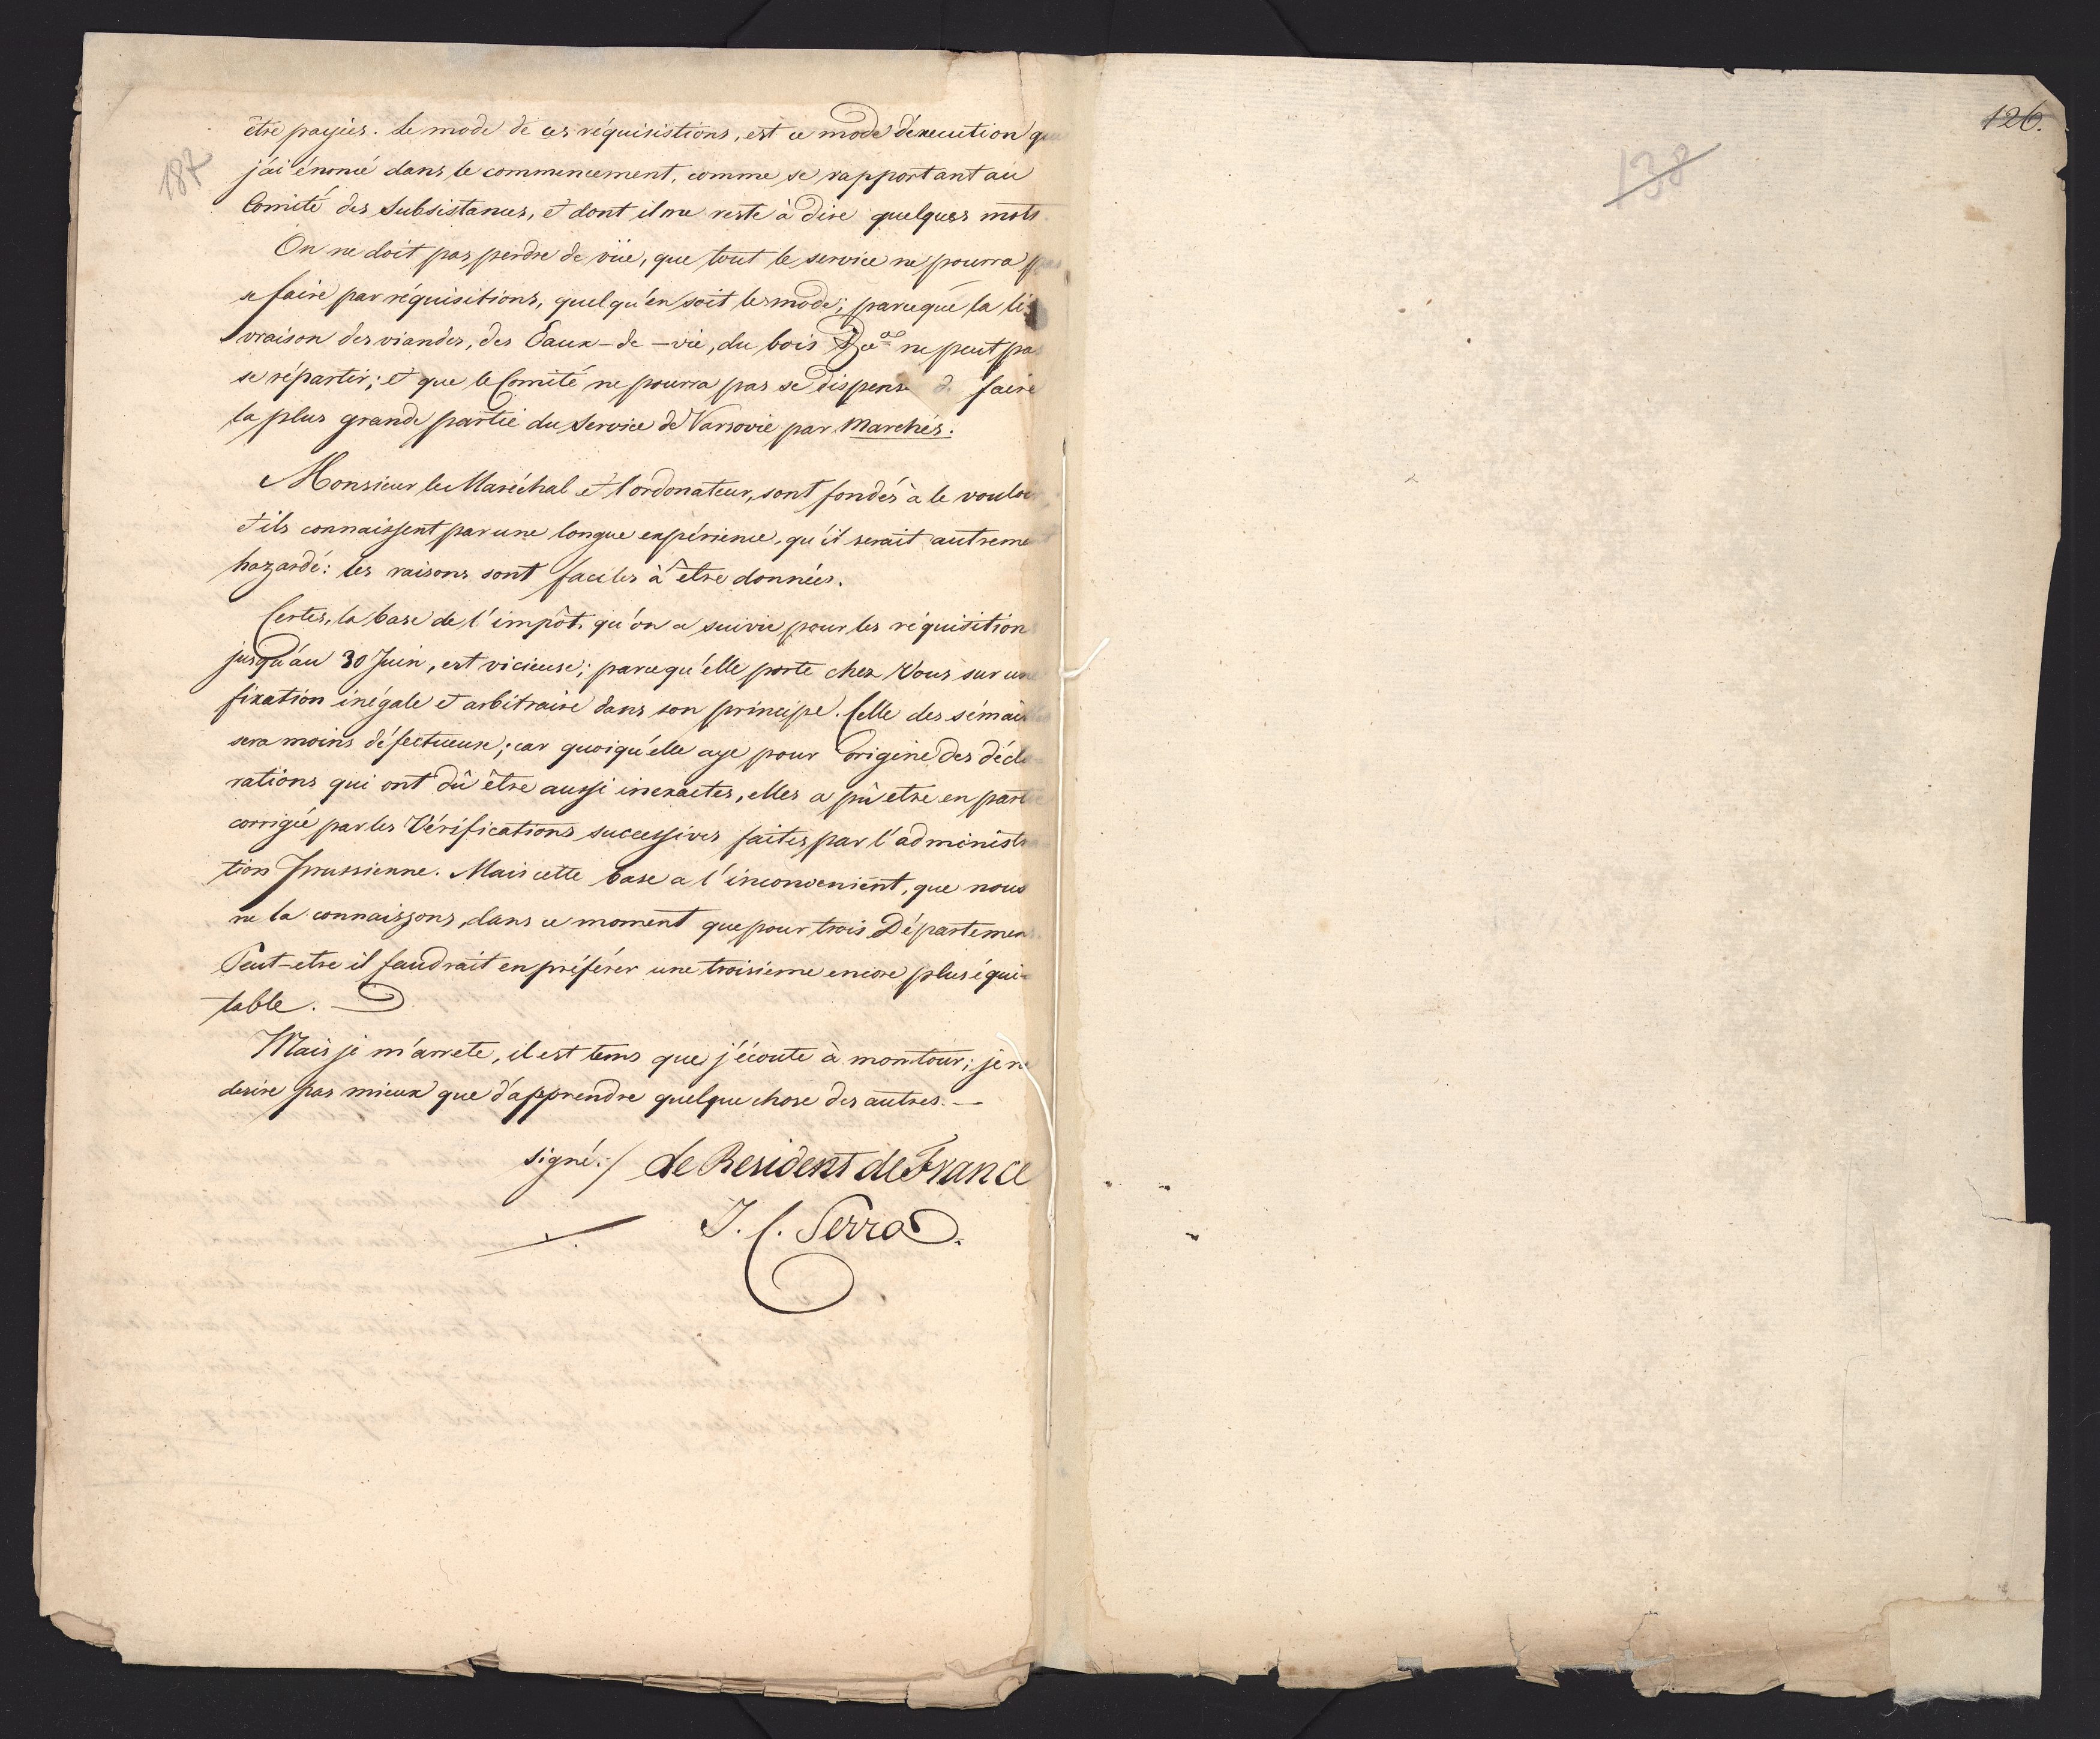 187
être payées. Le mode de ces réquisistions, est ce mode d'éxecution que
j'ai énoncé dans le commencement, comme se rapportant au
Comité des Subsistances, et dont il me reste à dire quelques mots.
On ne doit pas perdre de vüe, que tout le service ne pourra pas
se faire par réquisitions, quelqu'en soit le mode; parceque la li-
vraison des viandes, des Eaux-de-vie, du bois &ca ne peut pas
se répartir; et que le Comité ne pourra pas se dispenser de faire
la plus grande partie du Service de Varsovie par Marchés.
Monsieur le Maréchal et l'ordonateur, sont fondés à le vouloir,
et ils connaissent par une longue expérience, qu'il serait autrement
hazardé: les raisons sont faciles à être données.
Certes, la base de l'impôt, qu'on a suivie pour les réquisitions
jusqu'au 30 Juin, est vicieuse; parcequ'elle porte chez Vous sur une
fixation inégale et arbitraire dans son principe. Celle des sémailles
sera moins défectueuse; car quoiqu'elle aye pour origine des décla-
rations qui ont dû être aussi inexactes, elles a pû etre en partie
corrigée par les Vérifications successives faites par l'administra-
tion Prussienne. Mais cette base a l'inconvenient, que nous
ne la connaissons, dans ce moment que pour trois Départemens.
Peut-etre il faudrait en préférer une troisieme encore plus équi-
table.
Mais je m'arrete, il est tems que j'écoute à mon tour; je ne
desire pas mieux que d'apprendre quelque chose des autres.—
signé:/ Le Resident de France
J. C. Serra.
126.
138